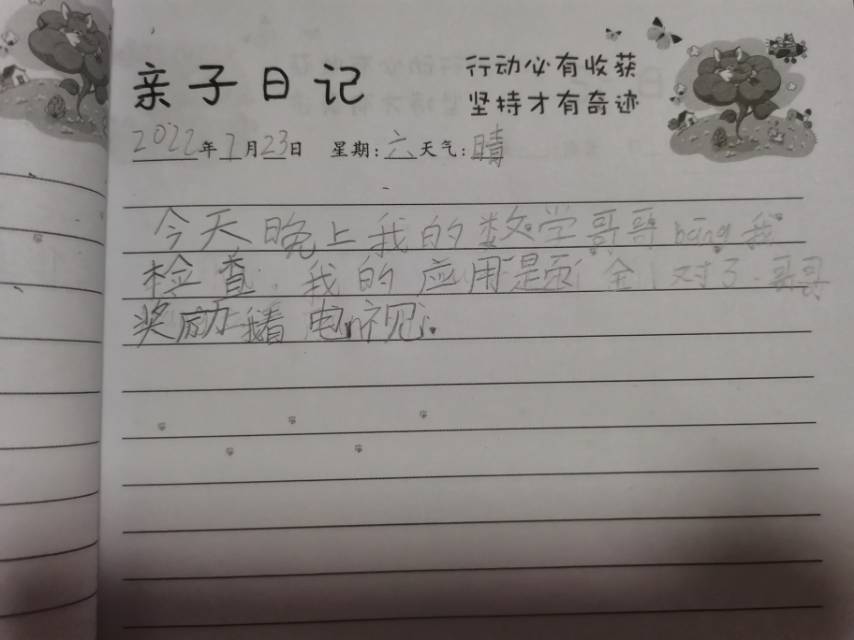 亲子日记
行动必有收获
坚持才有奇迹
2022年7月23日 星期:六天气:晴
今天晚上我的数学哥哥bāng我
检查,我的应用是页全对了.哥哥
奖励我看电视.